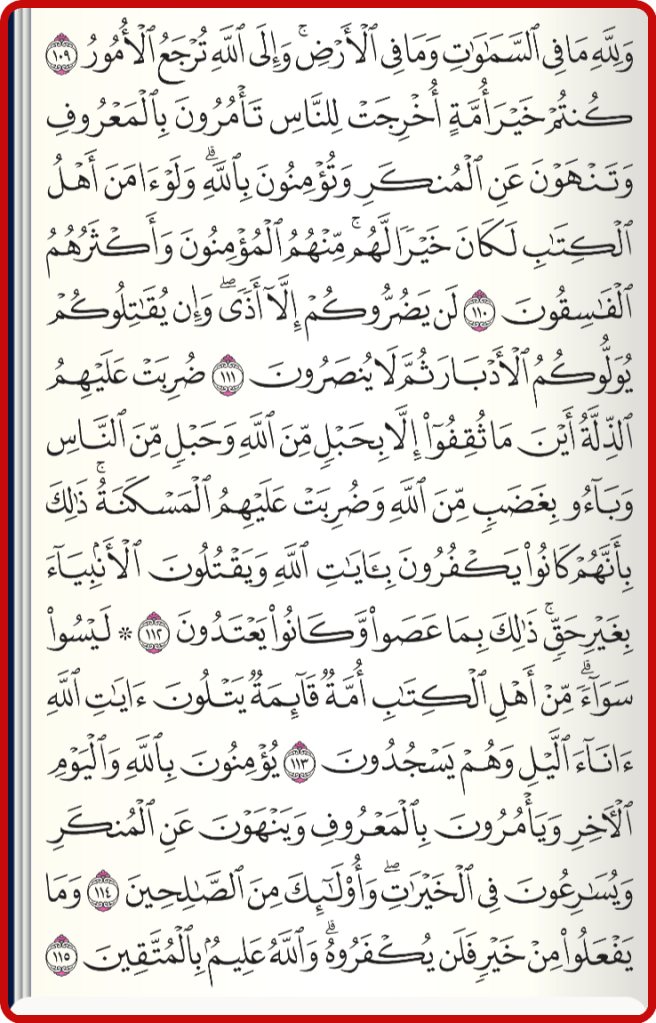 وَلِلَّهِ مَا فِي ٱلسَّمَٰوَٰتِ وَمَا فِي ٱلۡأَرۡضِۚ وَإِلَى ٱللَّهِ تُرۡجَعُ ٱلۡأُمُورُ ١٠٩
كُنتُمۡ خَيۡرَ أُمَّةٍ أُخۡرِجَتۡ لِلنَّاسِ تَأۡمُرُونَ بِٱلۡمَعۡرُوفِ
وَتَنۡهَوۡنَ عَنِ ٱلۡمُنكَرِ وَتُؤۡمِنُونَ بِٱللَّهِۗ وَلَوۡ ءَامَنَ أَهۡلُ
ٱلۡكِتَٰبِ لَكَانَ خَيۡرٗا لَّهُمۚ مِّنۡهُمُ ٱلۡمُؤۡمِنُونَ وَأَكۡثَرُهُمُ
ٱلۡفَٰسِقُونَ ١١٠ لَن يَضُرُّوكُمۡ إِلَّآ أَذٗىۖ وَإِن يُقَٰتِلُوكُمۡ
يُوَلُّوكُمُ ٱلۡأَدۡبَارَ ثُمَّ لَا يُنصَرُونَ ١١١ ضُرِبَتۡ عَلَيۡهِمُ
ٱلذِّلَّةُ أَيۡنَ مَا ثُقِفُوٓاْ إِلَّا بِحَبۡلٖ مِّنَ ٱللَّهِ وَحَبۡلٖ مِّنَ ٱلنَّاسِ
وَبَآءُو بِغَضَبٖ مِّنَ ٱللَّهِ وَضُرِبَتۡ عَلَيۡهِمُ ٱلۡمَسۡكَنَةُۚ ذَٰلِكَ
بِأَنَّهُمۡ كَانُواْ يَكۡفُرُونَ بِـَٔايَٰتِ ٱللَّهِ وَيَقۡتُلُونَ ٱلۡأَنۢبِيَآءَ
بِغَيۡرِ حَقّٖۚ ذَٰلِكَ بِمَا عَصَواْ وَّكَانُواْ يَعۡتَدُونَ ١١٢ ۞ لَيۡسُواْ
سَوَآءٗۗ مِّنۡ أَهۡلِ ٱلۡكِتَٰبِ أُمَّةٞ قَآئِمَةٞ يَتۡلُونَ ءَايَٰتِ ٱللَّهِ
ءَانَآءَ ٱلَّيۡلِ وَهُمۡ يَسۡجُدُونَ ١١٣ يُؤۡمِنُونَ بِٱللَّهِ وَٱلۡيَوۡمِ
ٱلۡأٓخِرِ وَيَأۡمُرُونَ بِٱلۡمَعۡرُوفِ وَيَنۡهَوۡنَ عَنِ ٱلۡمُنكَرِ
وَيُسَٰرِعُونَ فِي ٱلۡخَيۡرَٰتِۖ وَأُوْلَٰٓئِكَ مِنَ ٱلصَّٰلِحِينَ ١١٤ وَمَا
يَفۡعَلُواْ مِنۡ خَيۡرٖ فَلَن يُكۡفَرُوهُۗ وَٱللَّهُ عَلِيمُۢ بِٱلۡمُتَّقِينَ ١١٥